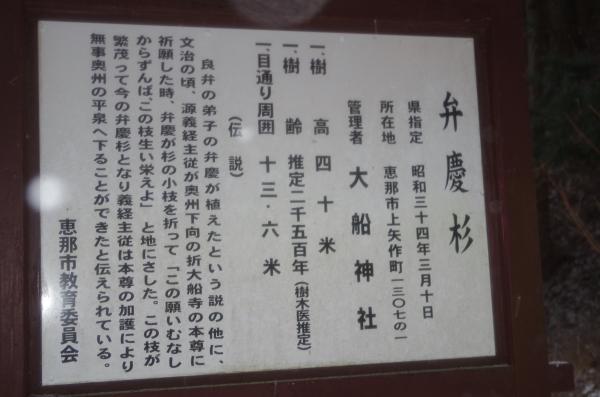 弁慶杉
県指定 昭和三十四年三月十日
所在地 恵那市上矢作町一三〇七の一
管理者 大船神社
一.樹高四十米
一.樹齢推定二千五百年(樹木医推定)
一.目通り周囲十三.六米
(伝説)
良弁の弟子の弁慶が植えたという説の他に、
文治の頃、源義経主従が奥州下向の折大船寺の本尊に
祈願した時、弁慶が杉の小枝を折って「この願いむなし
からずんば、この枝生い栄えよ」と地にさした。この枝が
繁茂って今の弁慶杉となり義経主従は本尊の加護により
無事奥州の平泉へ下ることができたと伝えられている。
恵那市教育委員会